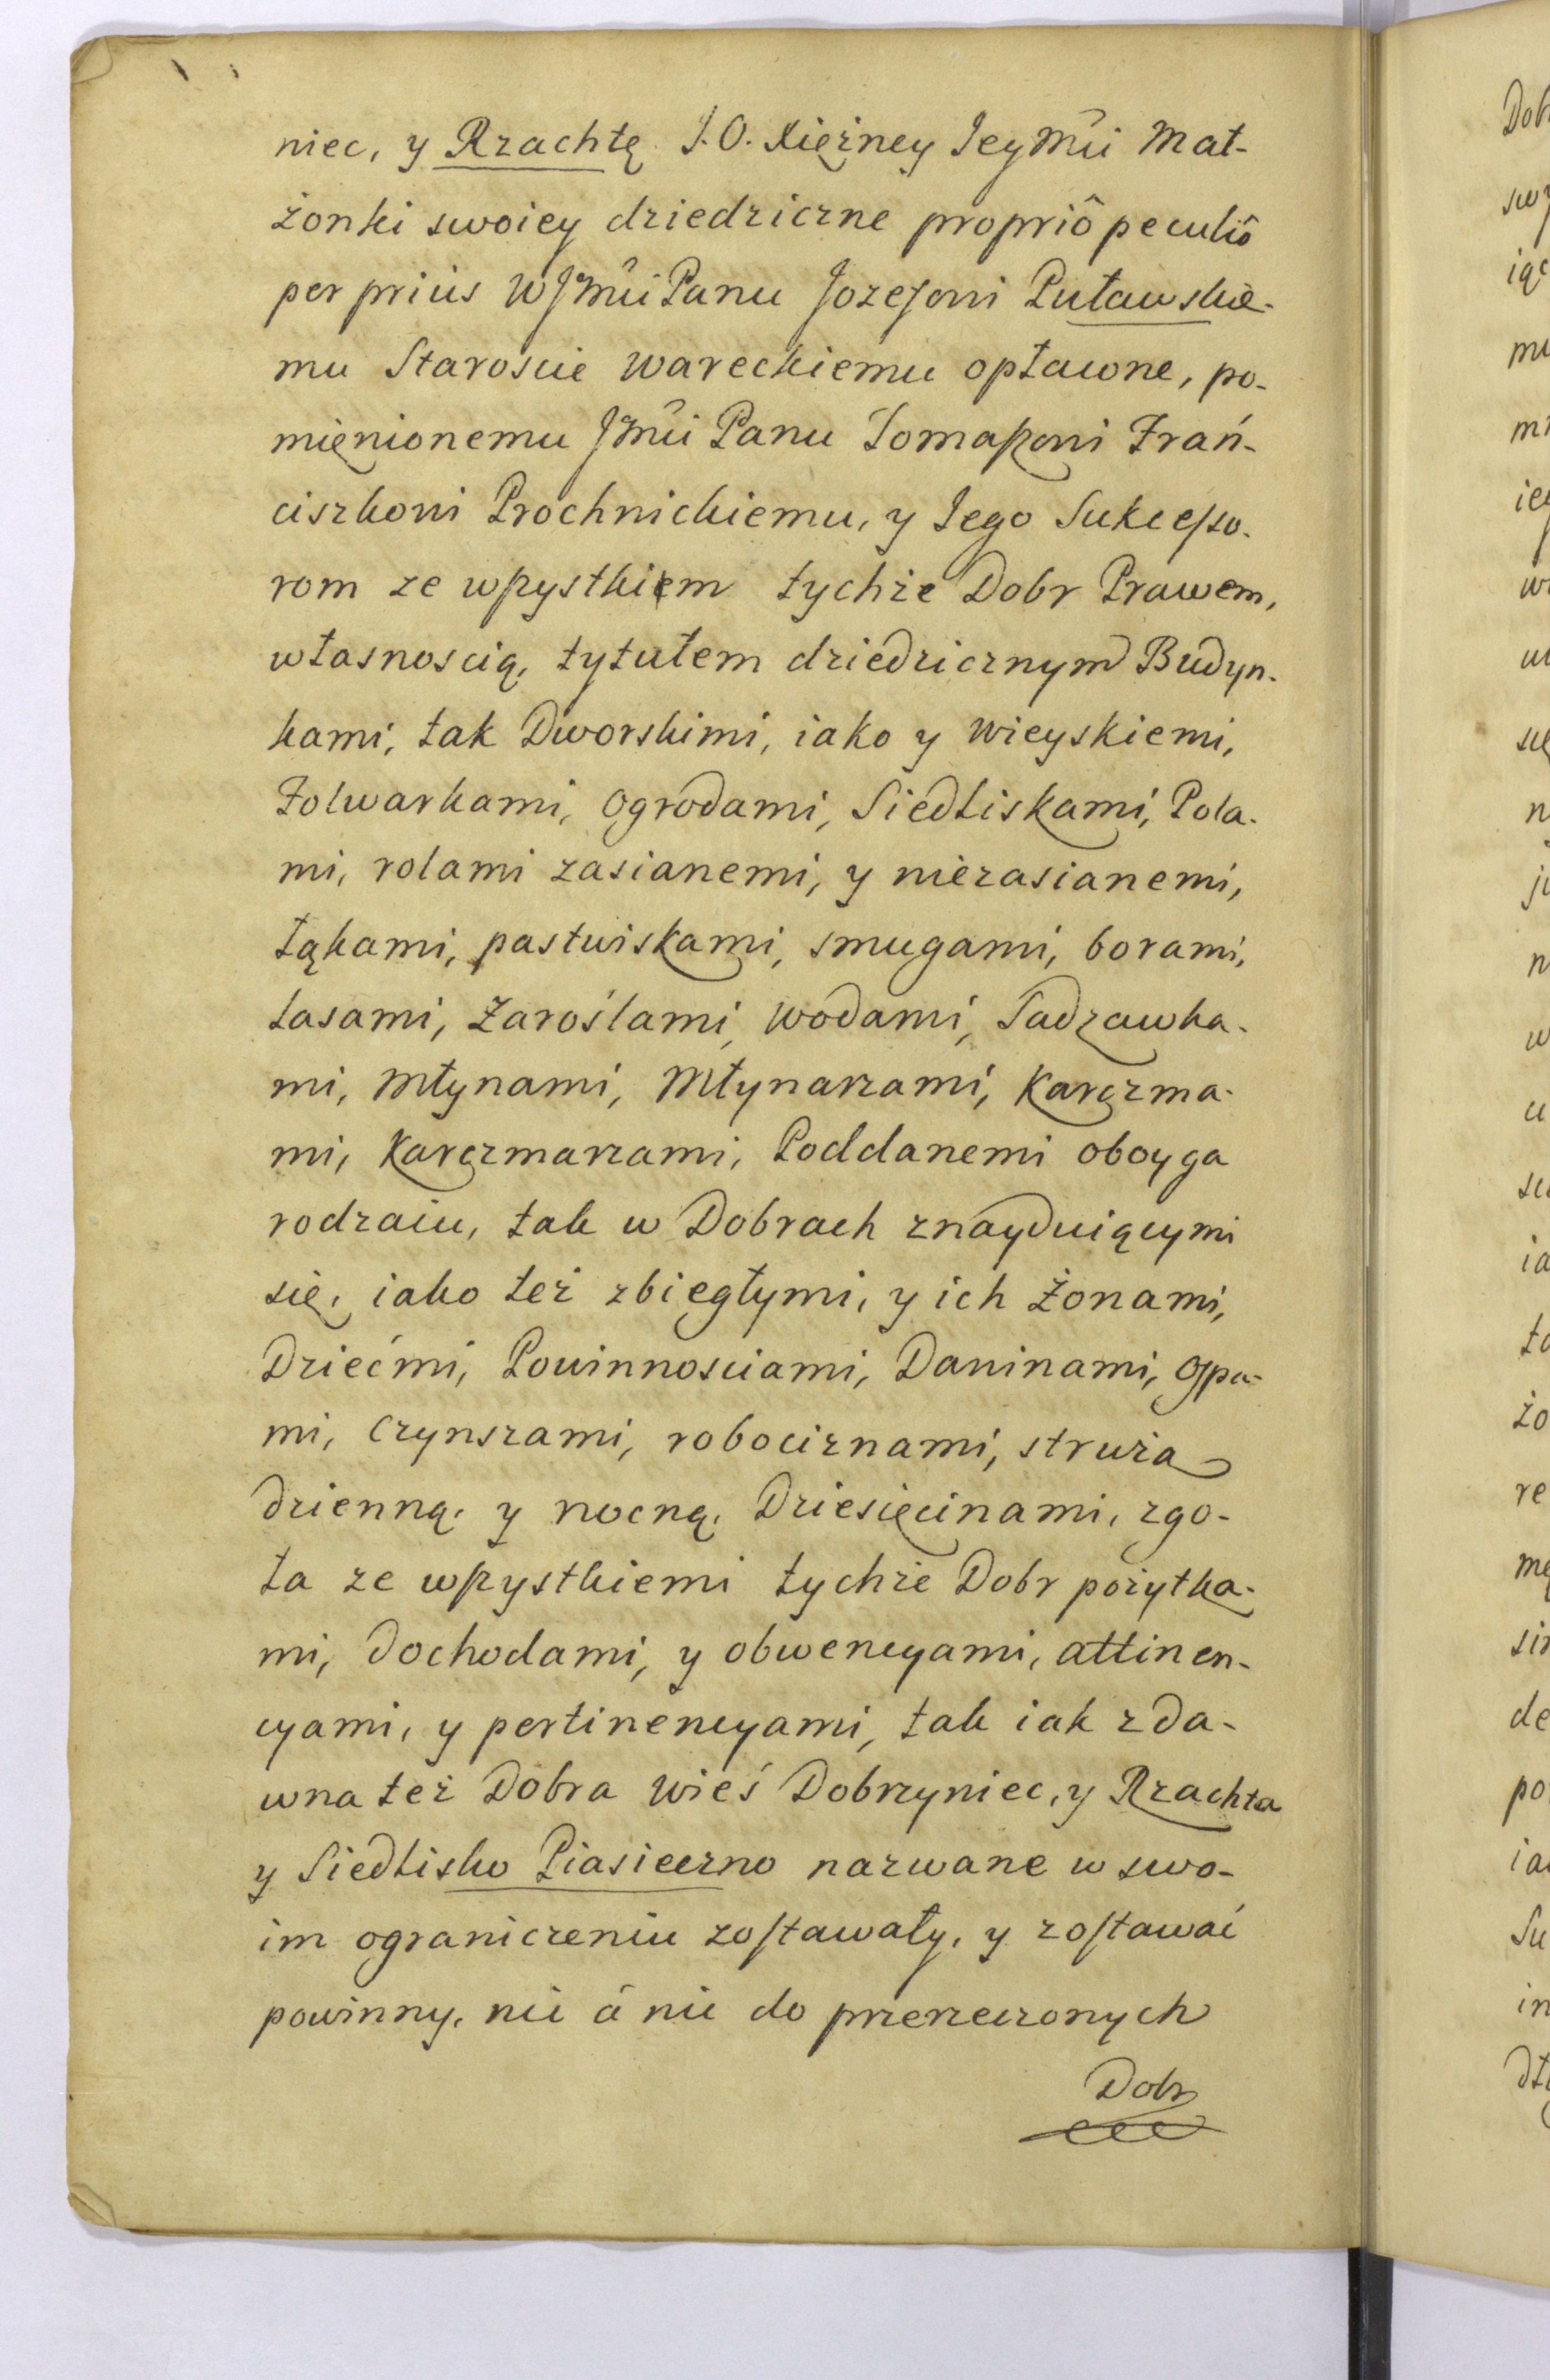 niec, y Rzachtę J. O. Xiężney Jeymći Mał-
żonki swoiey dziedziczne propriô peculiô
per prius WJmći Panu Jozefowi Puławskie-
mu Staroscie Wareckiemu opławne, po-
mięnionemu Jmći Panu Tomaszowi Frań-
ciszkowi Prochnickiemu, y Jego Sukcesso-
rom ze wszystkiem tychże Dobr Prawem,
własnoscią, tytułem dziedzicznym Budyn-
kami, tak Dworskimi, iako y wieyskiemi,
Folwarkami, Ogrodami, Siedliskami, Pola-
mi, rolami zasianemi, y niezasianemi,
łąkami, pastwiskami, smugami, borami,
lasami, Zaroślami, wodami, Sadzawka-
mi, Młynami, Młynarzami, Karczma-
mi, Karczmarzami, Poddanemi oboyga
rodzaiu, tak w Dobrach znayduiącymi
się, iako też zbiegłymi, y ich Żonami,
Dziećmi, Powinnosciami, Daninami, Ospa-
mi, Czynszami, robociznami, struża
dzienną, y nocną, Dziesięcinami, zgo-
ła ze wszystkiemi tychże Dobr pożytka-
mi, dochodami, y obwencyami, attinen-
cyami, y pertinencyami, tak iak zda-
wna też Dobra Wieś Dobrzyniec, y Rzachta
y Siedlisko Piasieczno nazwane w swo-
im ograniczeniu zostawały, y zostawać
powinny, nic á nic do przerzeczonych
Dobr